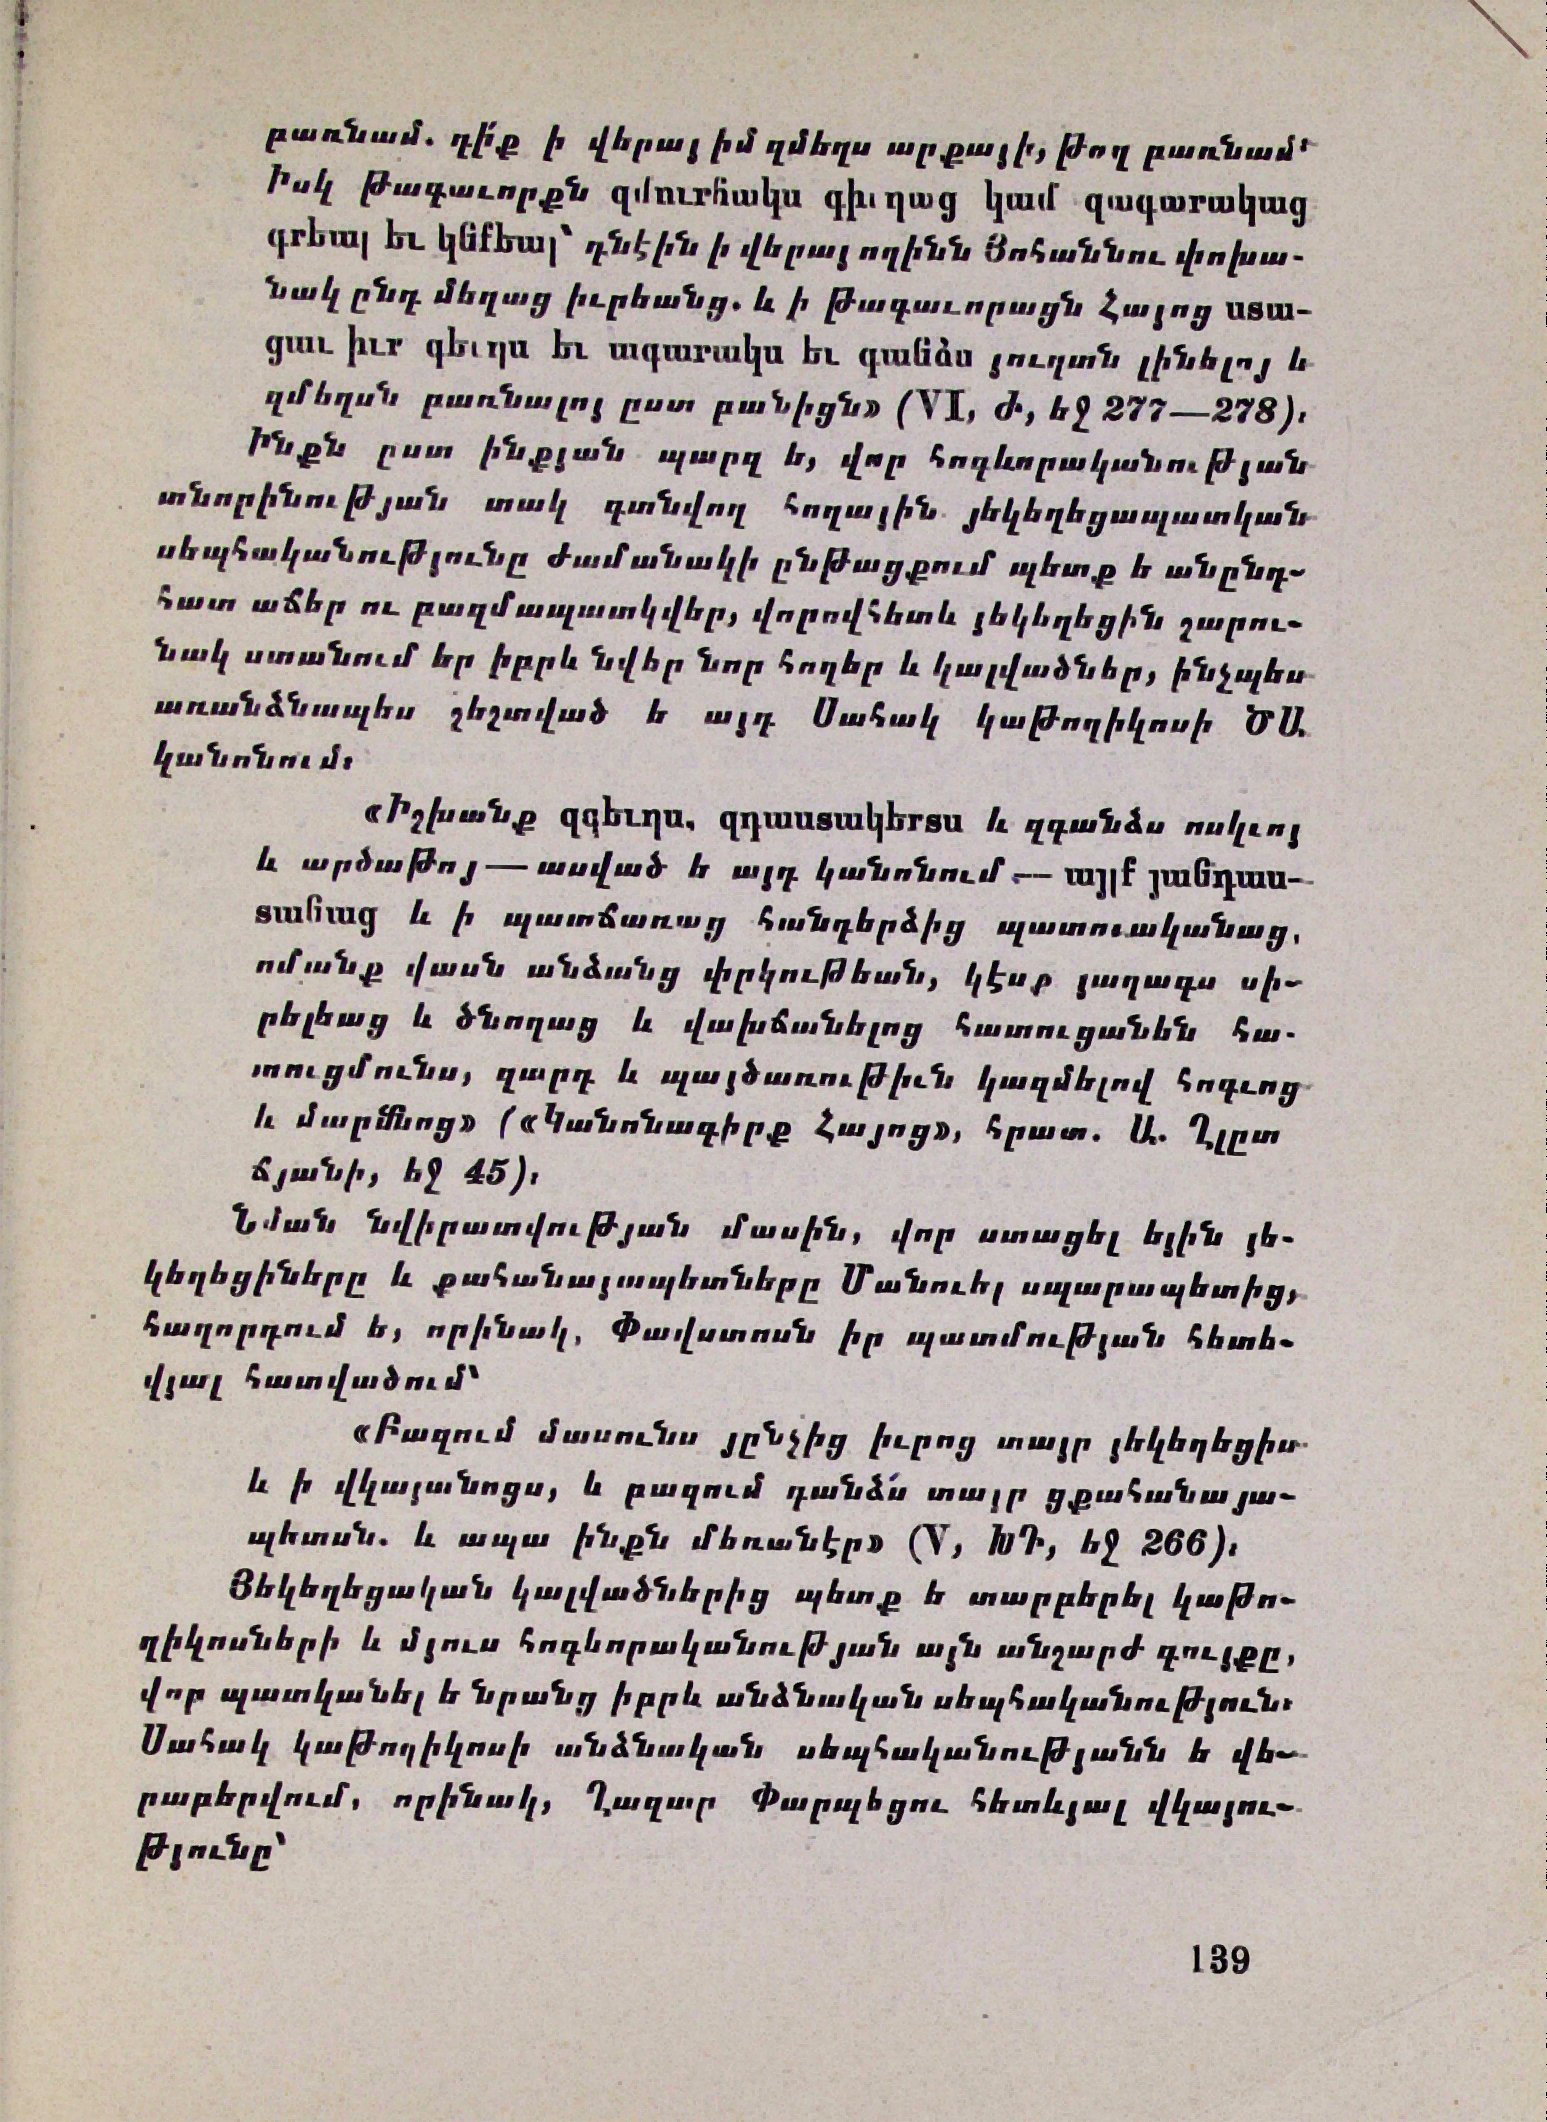 բառնամ. դի՛ք ի վերայ իմ զմեղս արքայի, թող բառնամ՝
Իսկ թագաւորքն զմուրհակս գիւղաց կամ զագարակաց
գրեալ եւ կնքեալ՝ դնէին ի վերայ ողինն Յոհաննու փոխա-
նակ ընդ մեղաց իւրեանց. և ի թագաւորացն Հայոց ստա-
ցաւ իւր գեւղս եւ ագարակս եւ գանձս յուղտն լինելոյ և
զմեղսն բառնալոյ ըստ բանիցն» (VI, Ժ, եջ 277—278)։
Ինքն ըստ ինքյան պարզ ե, վոր հոգևորականության
տնորինության տակ գտնվող հողային յեկեղեցապատկան
սեպհականությունը ժամանակի ընթացքում պետք ե անընդ-
հատ աճեր ու բազմապատկվեր, վորովհետև յեկեղեցին շարու-
նակ ստանում եր իբրև նվեր նոր հողեր և կալվածներ, ինչպես
առանձնապես շեշտված ե այդ Սահակ կաթողիկոսի ԾԱ
կանոնում։
«Իշխանք զգեւղս, զդաստակերտս և զգանձս ոսկւոյ
և արծաթոյ — ասված ե այդ կանոնում — այլք յանդաս-
տանաց և ի պատճառաց հանդերձից պատուականաց,
ոմանք վասն անձանց փրկութեան, կէսք յաղագս սի-
րելեաց և ծնողաց և վախճանելոց հատուցանեն հա-
տուցմունս, զարդ և պայծառութիւն կազմելով հոգւոց
և մարմնոց» («Կանոնագիրք Հայոց», հրատ. Ա. Ղլըտ
ճյանի, եջ 45)։
Նման նվիրատվության մասին, վոր ստացել եյին յե-
կեղեցիները և քահանայապետները Մանուել սպարապետից,
հաղորդում ե, որինակ, Փավստոսն իր պատմության հետե-
վյալ հատվածում՝
«Բազում մասունս յընչից իւրոց տայր յեկեղեցիս
և ի վկայանոցս, և բազում դանձս տայր ցքահանայա-
պետսն. և ապա ինքն մեռանէր» (V, ԽԴ, եջ 266)։
Յեկեղեցական կալվածներից պետք ե տարբերել կաթո-
ղիկոսների և մյուս հոգևորականության այն անշարժ գույքը,
վոր պատկանել ե նրանց իբրև անձնական սեպհականություն։
Սահակ կաթողիկոսի անձնական սեպհականությանն ե վե-
րաբերվում, որինակ, Ղազար Փարպեցու հետևյալ վկայու-
թյունը՝
139